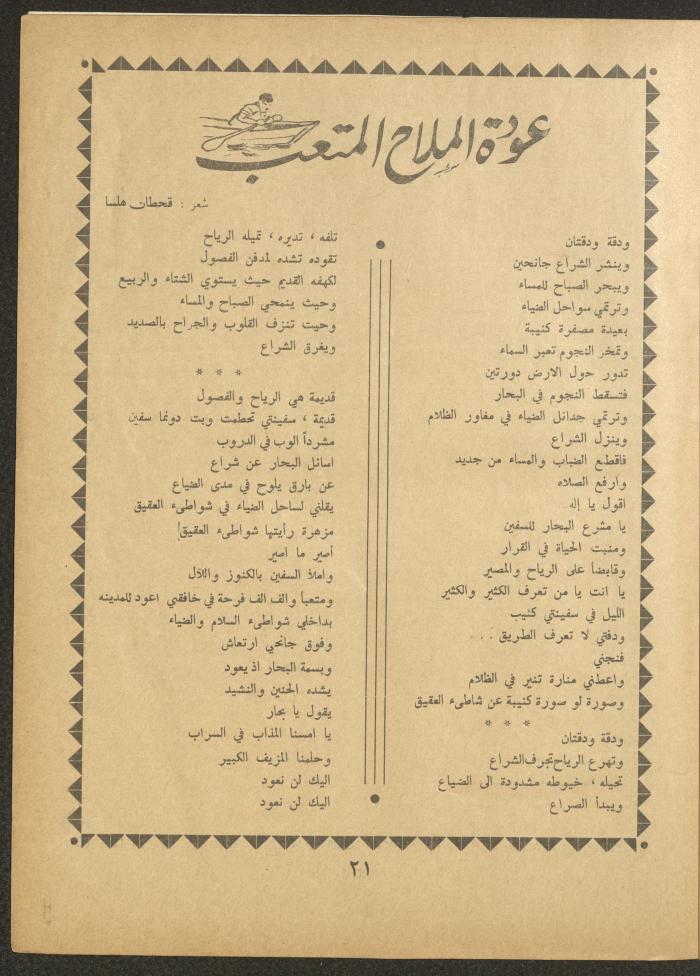 عودة الملاح المتعب
شعر : قحطان هلسا
ودقة ودقتان
وينشر الشراع جانحين
ويبحر الصباح للمساء
وترتمي سواحل الضياء
بعيدة مصفرة كئيبة
وتمخر النجوم تعبر السماء
تدور حول الارض دورتين
فتسقط النجوم في البحار
وترتمي جدائل الضياء في مغاور الظلام
وينزل الشراع
فاقطع الضباب والمساء من جديد
وارفع الصلاه
اقول يا إله
يا مشرع البحار للسفين
ومنبت الحياة في القرار
وقابضاً على الرياح والمصير
يا انت يا من تعرف الكثير والكثير
الليل في سفينتي كئيب
ودفتي لا تعرف الطريق . . .
فنجني
واعطني منارة تنير في الظلام
وصورة لو صورة كئيبة عن شاطىء العقيق
* * *
ودقة ودقتان
وتهرع الرياح تجرف الشراع
تحيله ، خيوطه مشدودة الى الضياع
ويبدأ الصراع
تلفه ، تديره ، تميله الرياح
تقوده تشده لمدفن الفصول
لكهفه القديم حيث يستوي الشتاء والربيع
وحيث ينمحي الصباح والمساء
وحيث تنزف القلوب والجراح بالصديد
ويغرق الشراع
* * *
قديمة هي الرياح والفصول
قديمة ، سفينتي تحطمت وبت دونما سفين
مشرداً الوب في الدروب
اسائل البحار عن شراع
عن بارق يلوح في مدى الضياع
يقلني لساحل الضياء في شواطىء العقيق
مزهرة رأيتها شواطىء العقيق!
أصير ما اصير
واملأ السفين بالكنوز واللآل
ومتعباً والف الف فرحة في خافقي اعود للمدينه
بداخلي شواطىء السلام والضياء
وفوق جانحي ارتعاش
وبسمة البحار اذ يعود
يشده الحنين والنشيد
يقول يا بحار
يا امسنا المذاب في السراب
وحلمنا المزيف الكبير
اليك لن نعود
اليك لن نعود
٢١